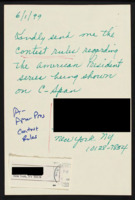 6/1/99
Kindly send me the
contest rules regarding
the American President
series being shown
on C-Span
New York NY
Contest
Rules